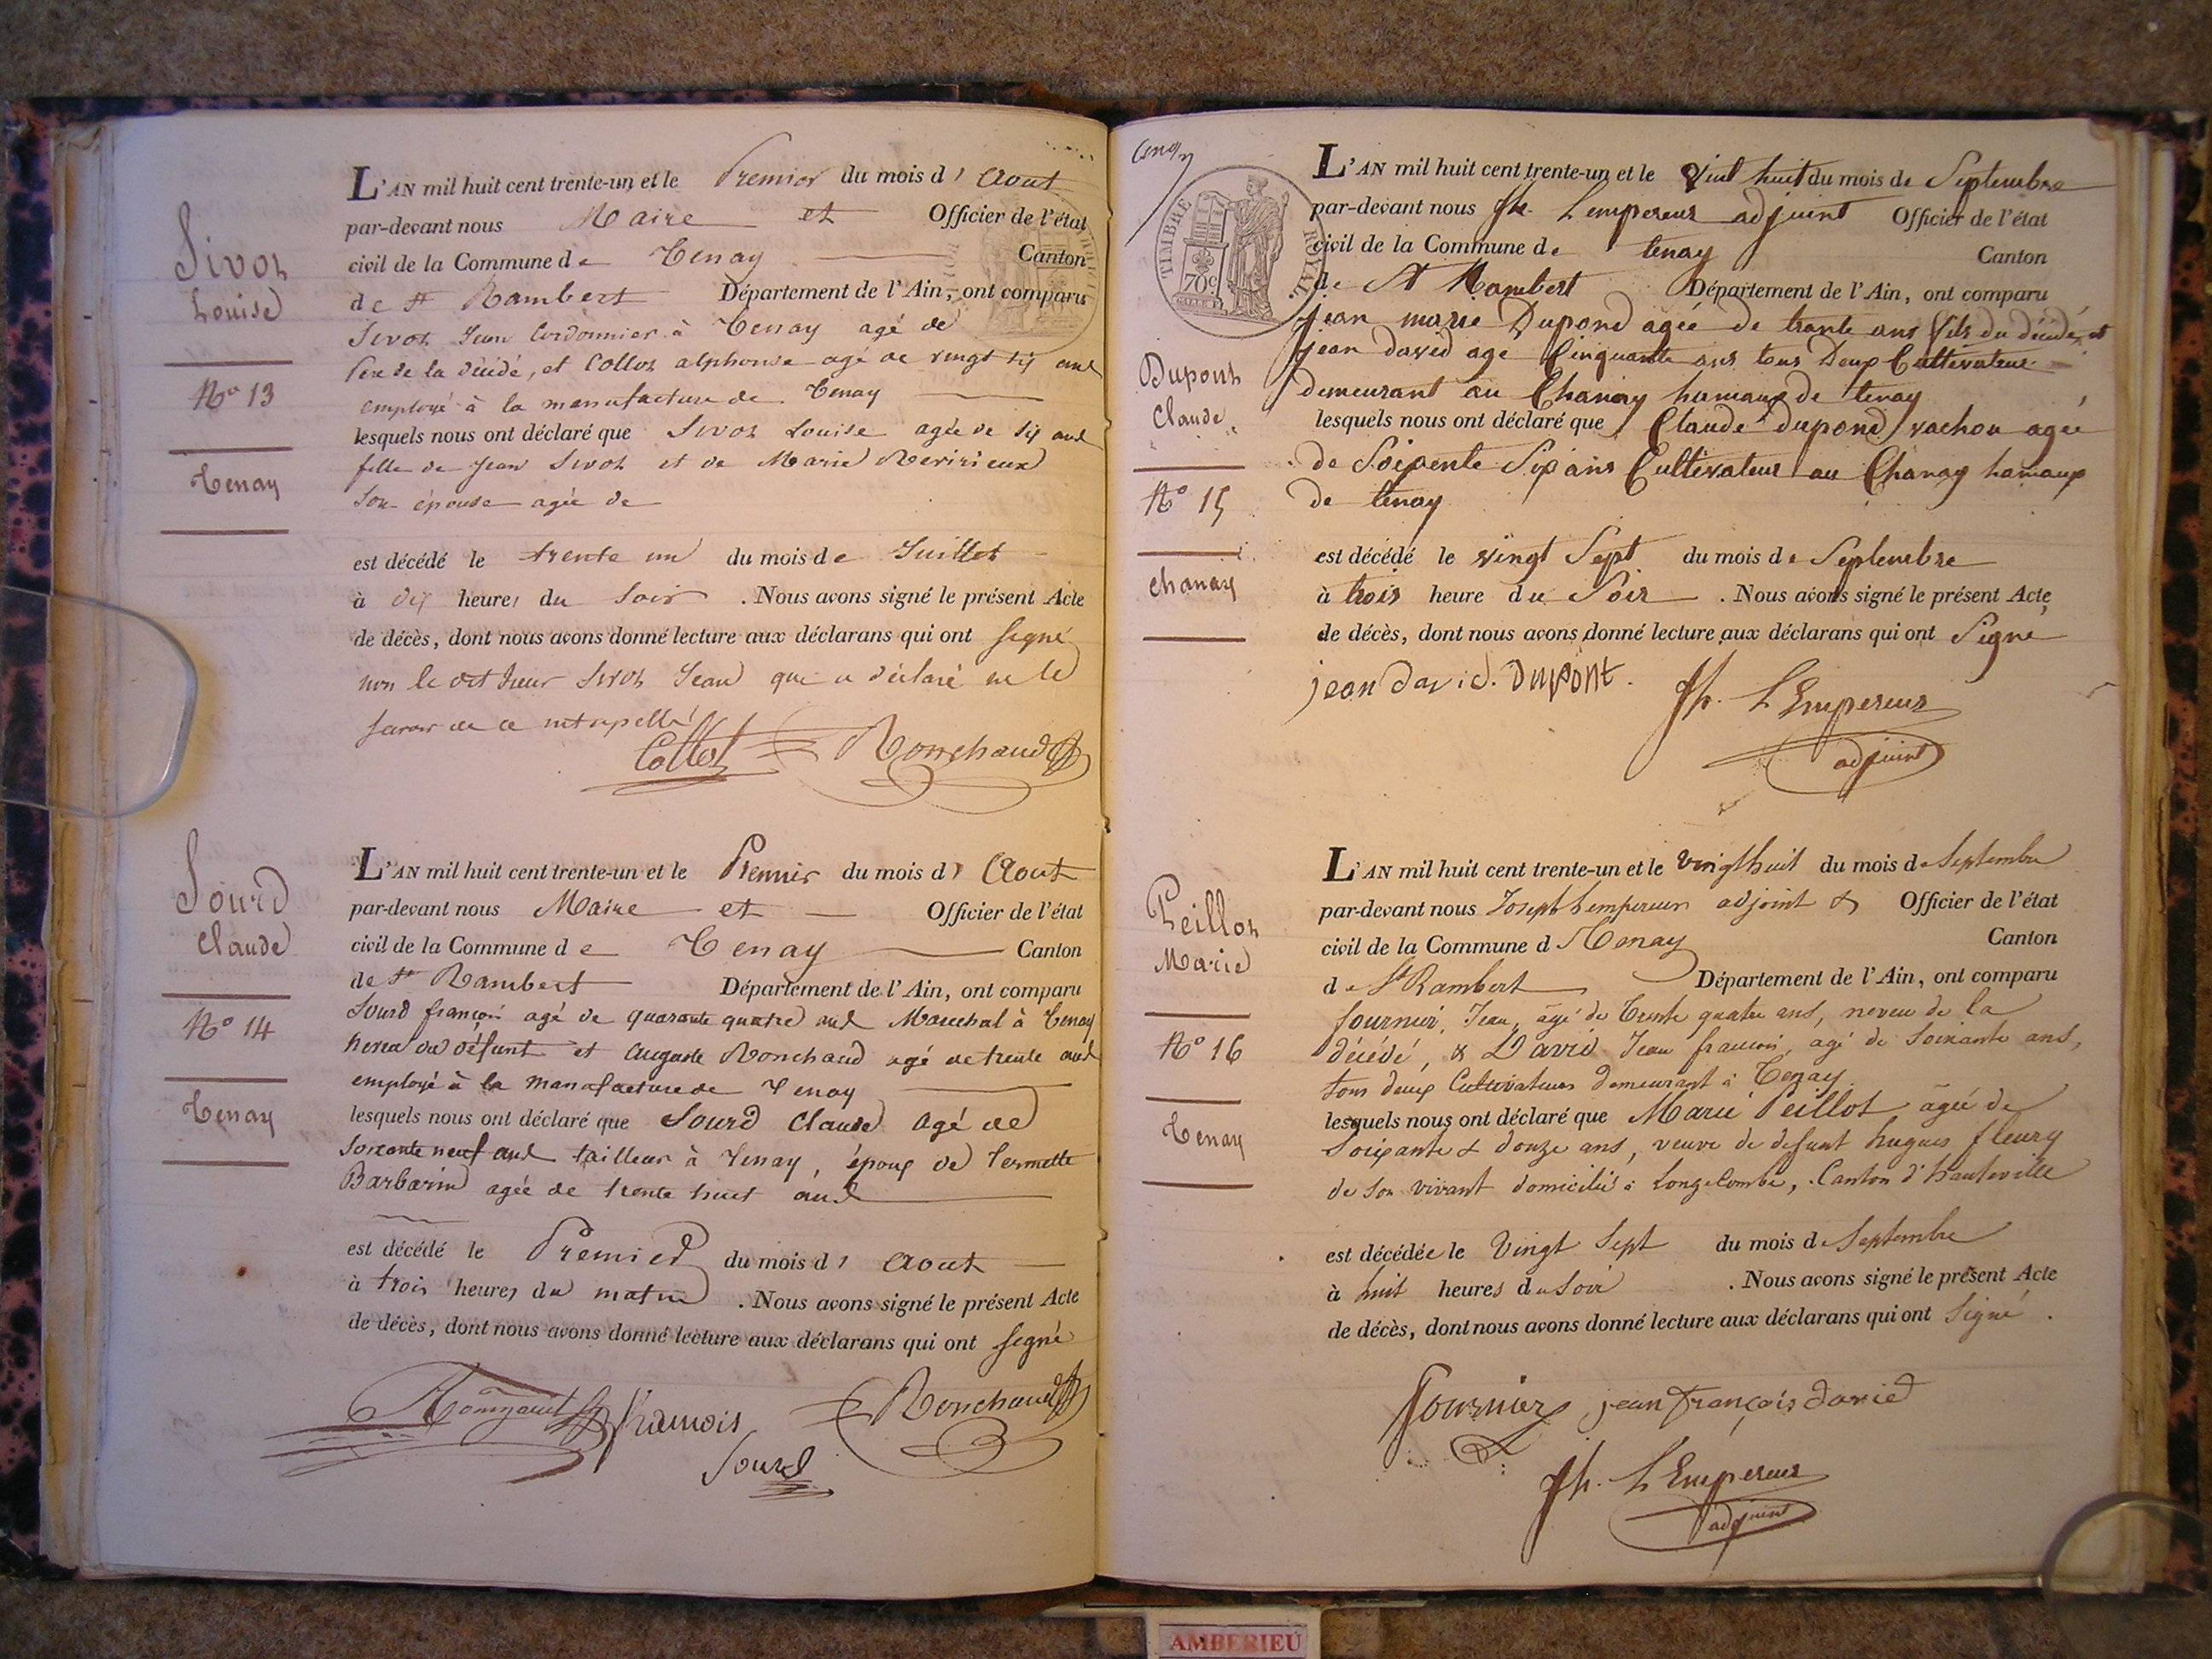 Sivot
Louise
No 13
Tenay
L'AN mil huit cent trente-un et le Premier du mois d' Aout
par-devant nous Maire et Officier de l'état
civil de la Commune de Tenay Canton
de St Rambert Département de l'Ain, ont comparu
Sivot Jean Cordonnier à Tenay agé de
Pere de la décédé, et Collot alphonse agé de vingt six ans
employé à la manufacture de Tenay
lesquels nous ont déclaré que Sivot Louise agée de six ans
fille de Jean Sivot et de Marie
son épouse agée de
est décédé le trente un du mois de Juillet
à dix heures du soir . Nous avons signé le présent Acte
de décès, dont nous avons donné lecture aux déclarans qui ont signé
non le dit Sieur Sivot Jean qui a déclaré ne le
savoir de ce
Collot Ronchaud
Sourd
Claude
No 14
Tenay
L'AN mil huit cent trente-un et le Premier du mois d' Aout
par-devant nous Maire et Officier de l'état
civil de la Commune de Tenay Canton
de St Rambert Département de l'Ain, ont comparu
Sourd françois agé de quarante quatre ans Marechal à Tenay
neveu du défunt et Auguste Ronchaud agé de trente ans
employé à la manufacture de Tenay
lesquels nous ont déclaré que Sourd Claude agé de
soixante neuf ans tailleur à Tenay, époux de
Barbarin agée de trente huit ans
est décédé le Premier du mois d' Aout
à trois heures du matin . Nous avons signé le présent Acte
de décès, dont nous avons donné lecture aux déclarans qui ont signé
Ronchaud
Sourd
TIMBRE ROYAL
70c
Dupont
Claude
No 15
Chanay
L'AN mil huit cent trente-un et le vint huit du mois de Septembre
par-devant nous Jh. Lempereur adjoint Officier de l'état
civil de la Commune de tenay Canton
de St Rambert Département de l'Ain, ont comparu
jean marie Dupond agée de trante ans fils du décidé, et
jean david age Cinquante ans tous Deux Cultevateur
demeurant au Chanay hamaux de tenay
lesquels nous ont déclaré que Claude dupond vachon agée
de Soixente Sep ans Cultivateur au Chanay hamaux
de tenay
est décédé le vingt Sept du mois de Septembre
à trois heure du Soir . Nous avons signé le présent Acte
de décès, dont nous avons donné lecture aux déclarans qui ont Signé
jean david. Dupont.
Jh. LEmpereur
adjoint
Peillot
Marie
No 16
Tenay
L'AN mil huit cent trente-un et le vingthuit du mois de Septembre
par-devant nous Joseph Lempereur adjoint & Officier de l'état
civil de la Commune d Tenay Canton
de St Rambert Département de l'Ain, ont comparu
fournier, Jean, âgé de trente quatre ans, neveu de la
décédé, & David Jean françois, agé de Soixante ans,
tous deux Cultivateurs demeurant à Tenay
lesquels nous ont déclaré que Marie Peillot âgée de
Soixante & douze ans, veuve de defunt hugues fleury
de son vivant domicilié à Longecombe, Canton d'hauteville
est décédée le Vingt Sept du mois de Septembre
à huit heures du Soir . Nous avons signé le présent Acte
de décès, dont nous avons donné lecture aux déclarans qui ont Signé .
fournier jean françois david
Jh. LEmpereur
adjoint
AMBERIEU